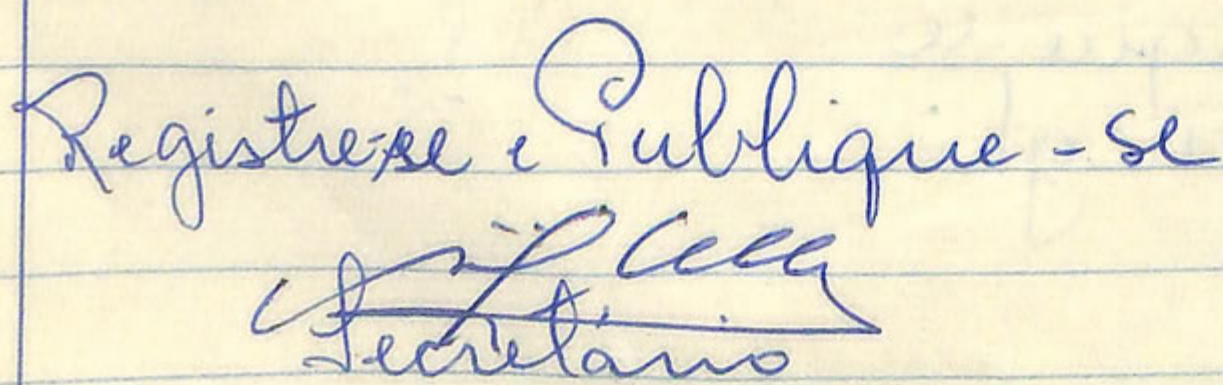 Registre-se e Publique-se
Secretário